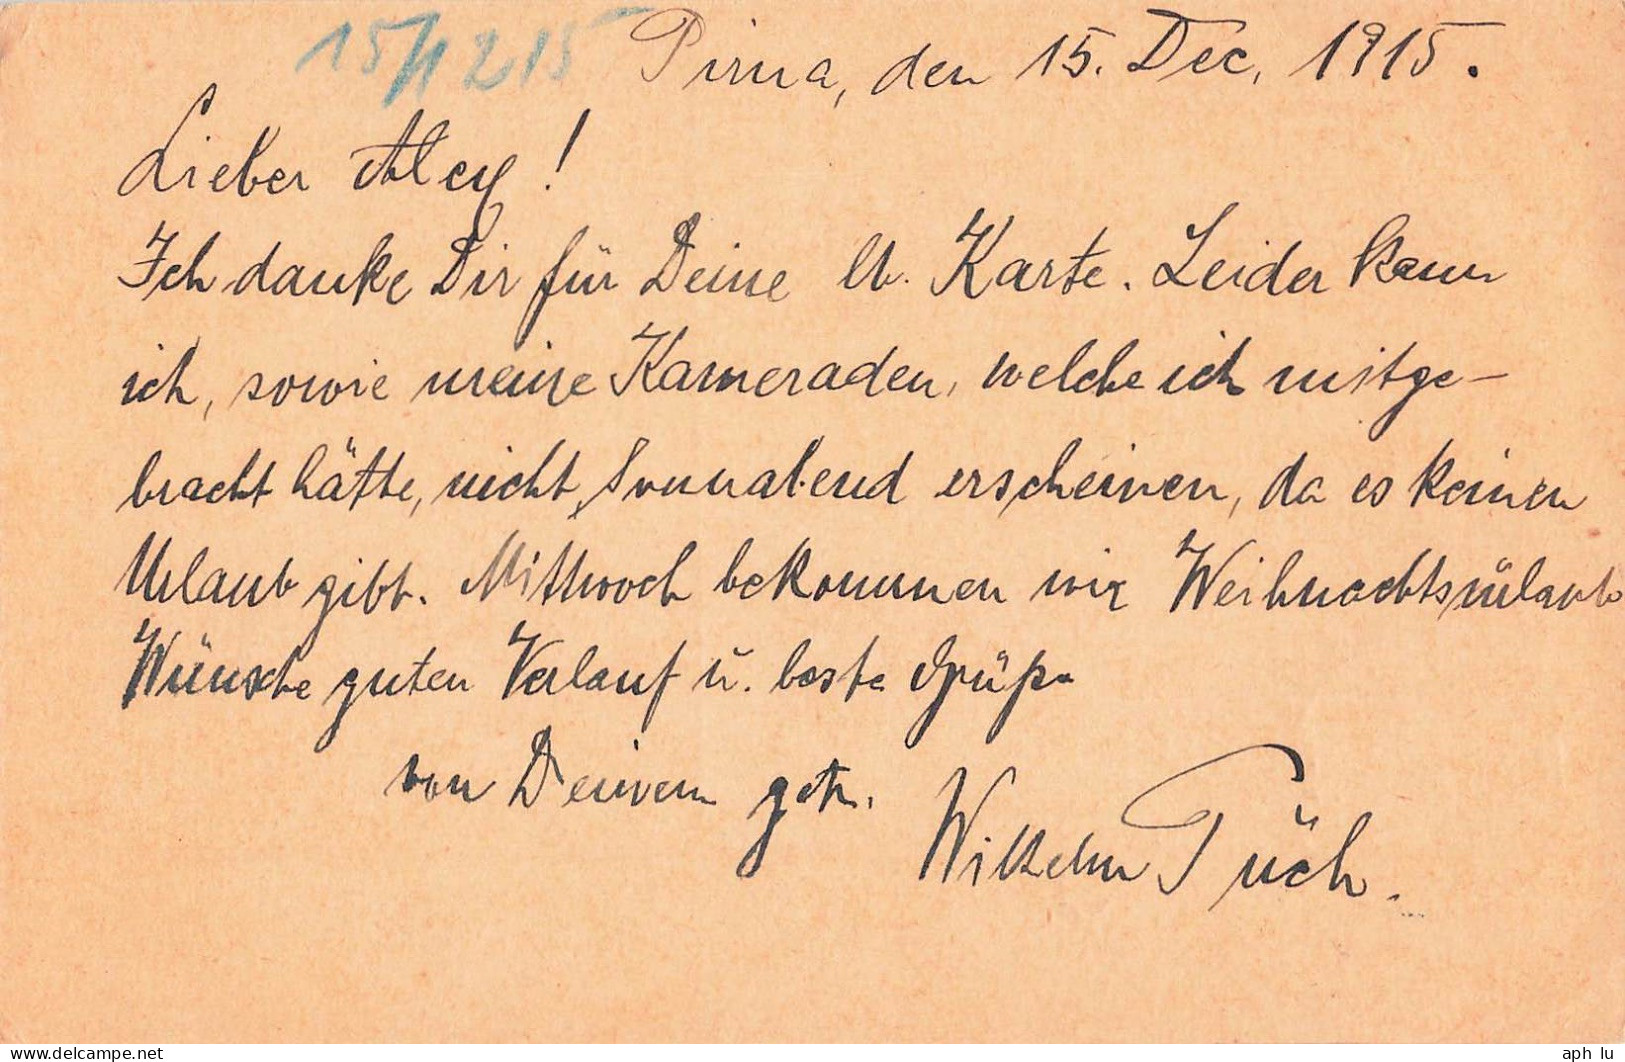 15/12 15
Pirna, den 15. Dec. 1915.
Lieber Alex!
Ich danke Dir für Deine lb. Karte. Leider kann
ich, sowie meine Kameraden, welche ich mitge-
bracht hätte, nicht Sonnabend erscheinen, da es keinen
Urlaub gibt. Mittwoch bekommen wir Weihnachtsurlaub
Wünsche guten Verlauf u. beste Grüße
von Deinem getr.
Wilhelm Tüch.
aph lu